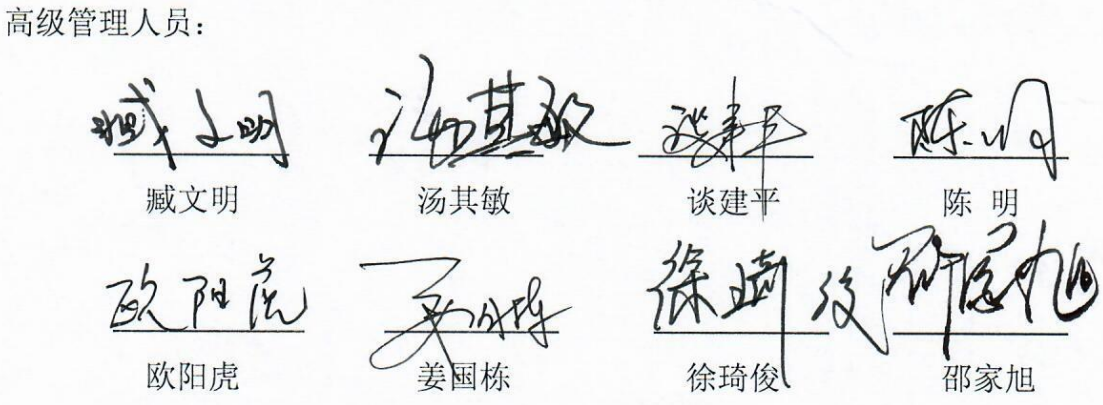 高级管理人员：
臧文明 汤其敏 谈建平 陈明
臧文明 汤其敏 谈建平 陈 明
欧阳虎 姜国栋 徐琦俊 邵家旭
欧阳虎 姜国栋 徐琦俊 邵家旭